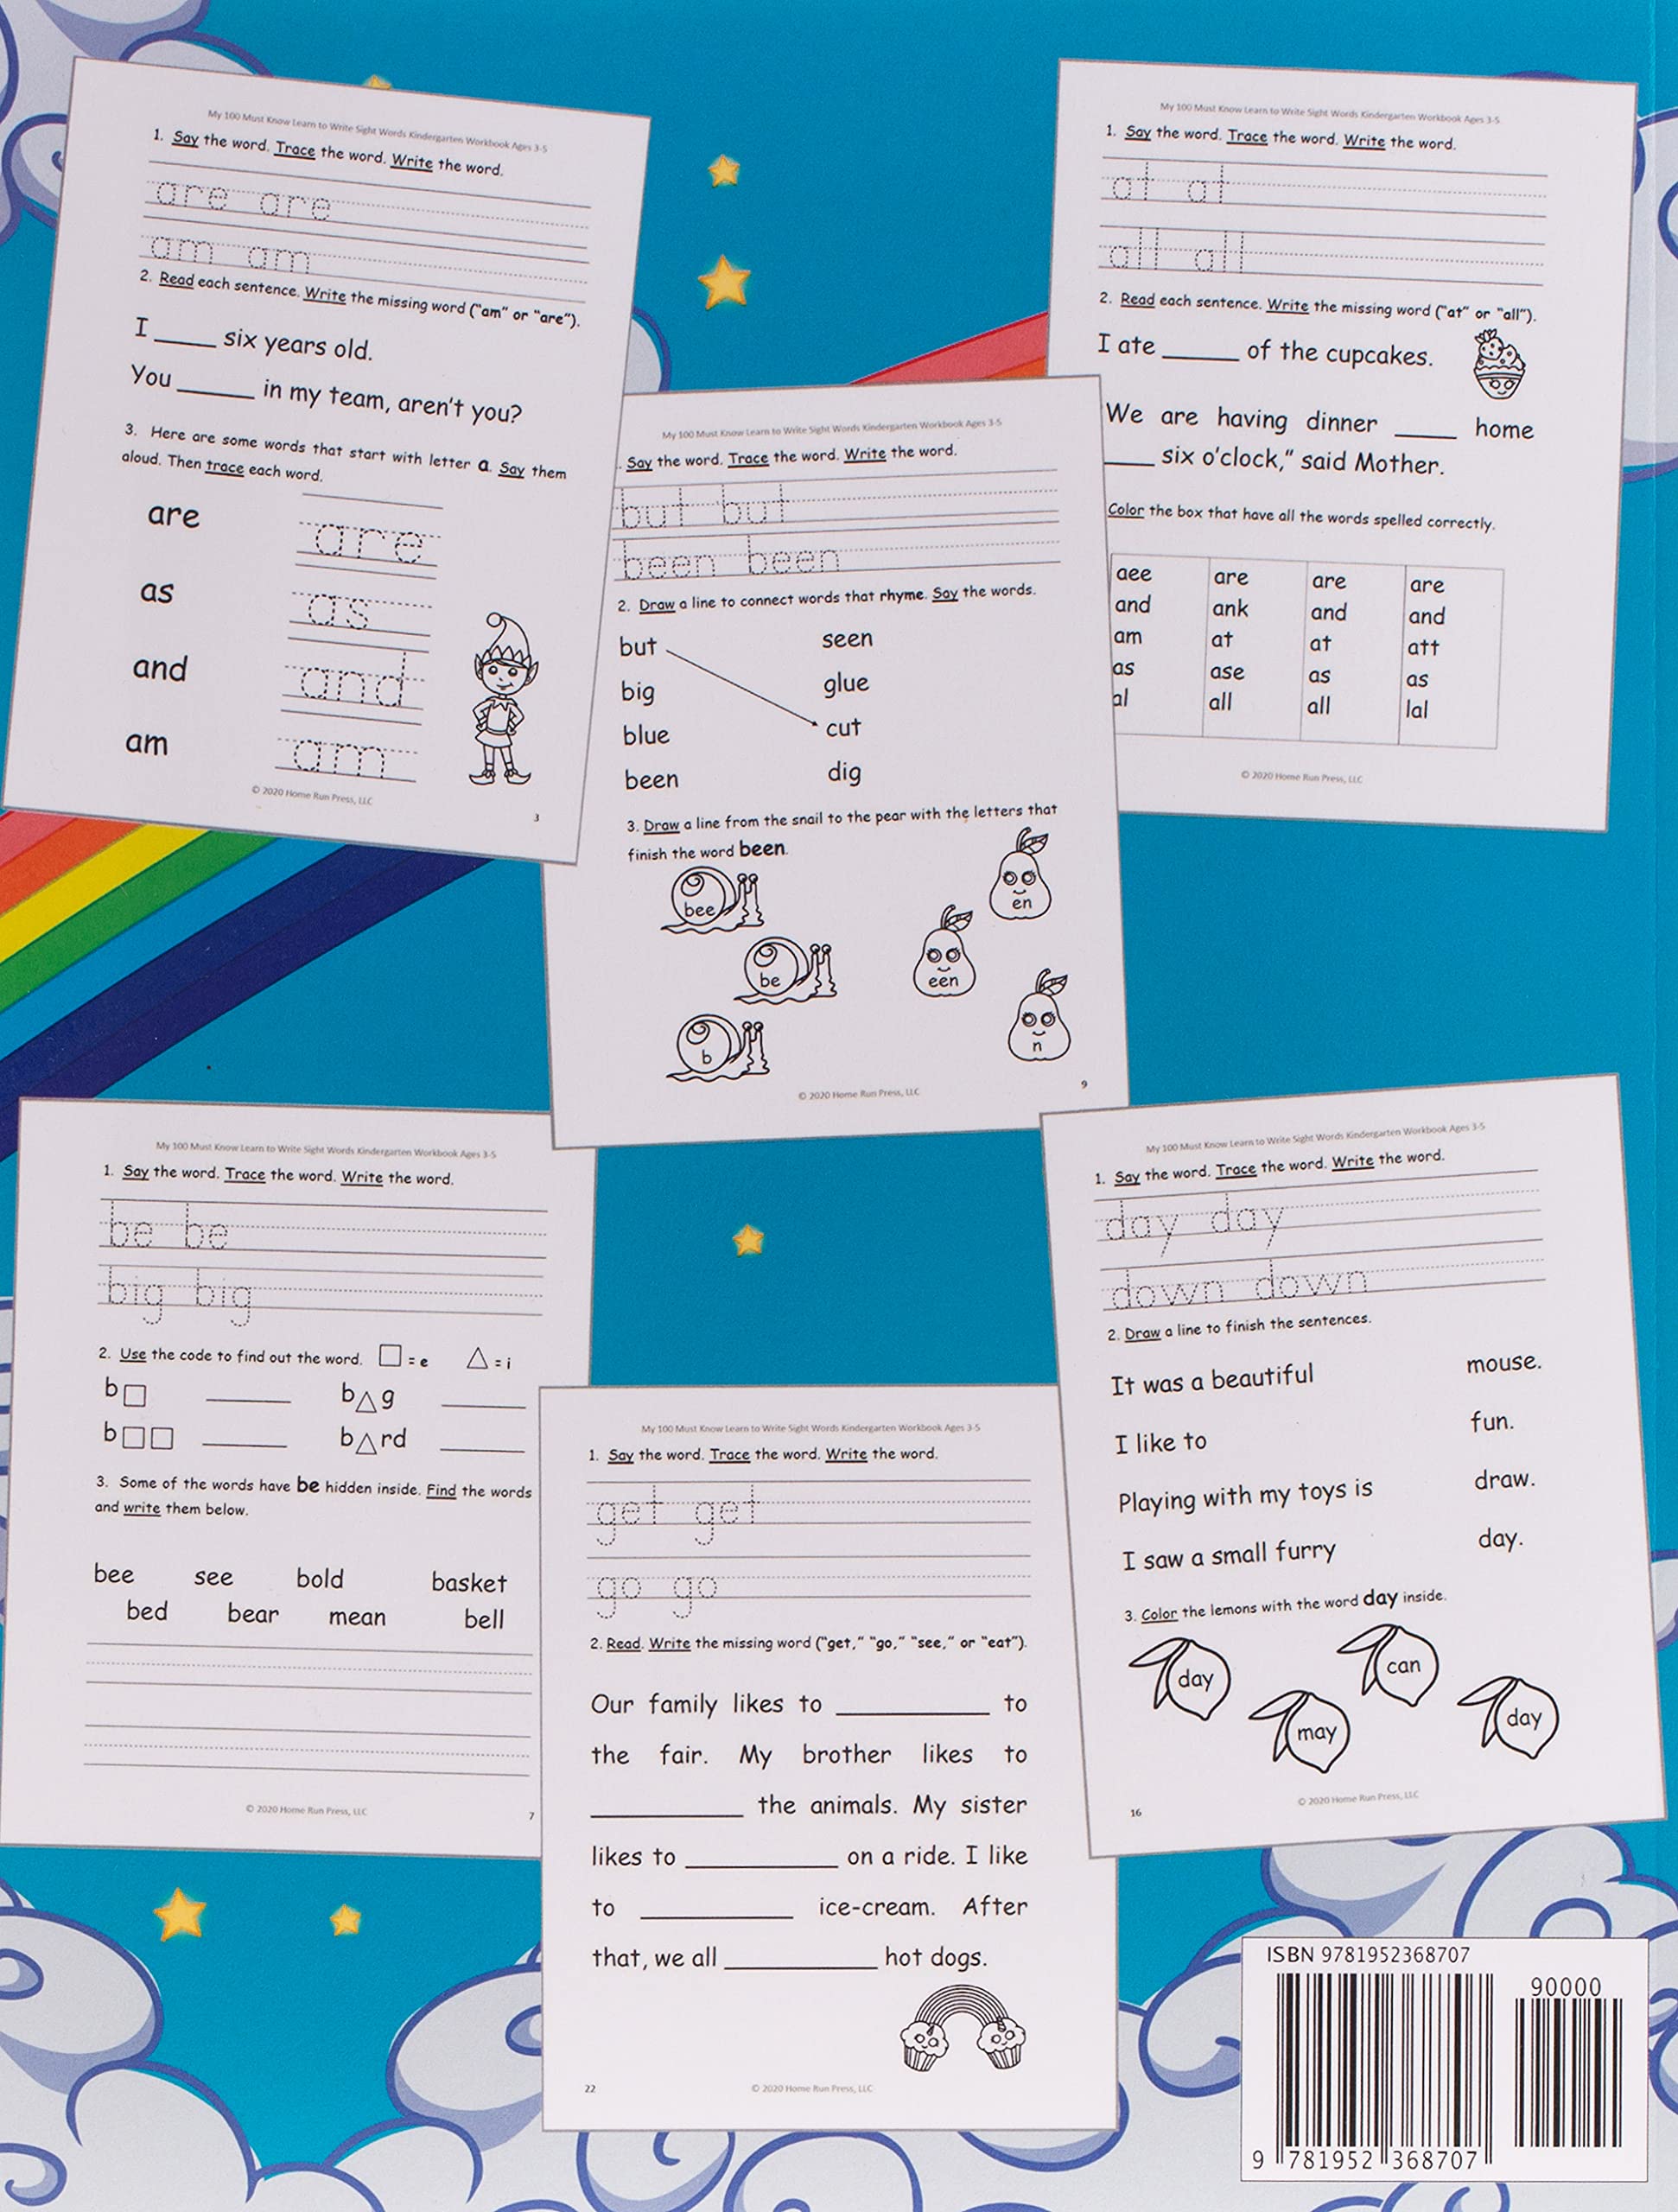 My 100 Must Know Learn to Write Sight Words Kindergarten Workbook Ages 3-5
1. Say the word. Trace the word. Write the word.
are are
am am
2. Read each sentence. Write the missing word ("am" or "are").
I _____ six years old.
You ______ in my team, aren't you?
3. Here are some words that start with letter a. Say them
aloud. Then trace each word.
are are
as as
and and
am am
© 2020 Home Run Press, LLC
3
My 100 Must Know Learn to Write Sight Words Kindergarten Workbook Ages 3-5
1. Say the word. Trace the word. Write the word.
at at
all all
2. Read each sentence. Write the missing word ("at" or "all").
I ate ______ of the cupcakes.
We are having dinner _____ home
____ six o'clock," said Mother.
Color the box that have all the words spelled correctly.
aee are are are
and ank and and
am at at att
as ase as as
al all all lal
© 2020 Home Run Press, LLC
My 100 Must Know Learn to Write Sight Words Kindergarten Workbook Ages 3-5
. Say the word. Trace the word. Write the word.
but but
been been
2. Draw a line to connect words that rhyme. Say the words.
but seen
big glue
blue cut
been dig
3. Draw a line from the snail to the pear with the letters that
finish the word been.
bee en
be een
b n
© 2020 Home Run Press, LLC
9
My 100 Must Know Learn to Write Sight Words Kindergarten Workbook Ages 3-5
1. Say the word. Trace the word. Write the word.
be be
big big
2. Use the code to find out the word. □ = e △ = i
b□ ______ b△g ______
b□□ ______ b△rd ______
3. Some of the words have be hidden inside. Find the words
and write them below.
bee see bold basket
bed bear mean bell
© 2020 Home Run Press, LLC
7
My 100 Must Know Learn to Write Sight Words Kindergarten Workbook Ages 3-5
1. Say the word. Trace the word. Write the word.
get get
go go
2. Read. Write the missing word ("get," "go," "see," or "eat").
Our family likes to __________ to
the fair. My brother likes to
__________ the animals. My sister
likes to __________ on a ride. I like
to __________ ice-cream. After
that, we all __________ hot dogs.
22
© 2020 Home Run Press, LLC
My 100 Must Know Learn to Write Sight Words Kindergarten Workbook Ages 3-5
1. Say the word. Trace the word. Write the word.
day day
down down
2. Draw a line to finish the sentences.
It was a beautiful mouse.
I like to fun.
Playing with my toys is draw.
I saw a small furry day.
3. Color the lemons with the word day inside.
day may can day
16
© 2020 Home Run Press, LLC
ISBN 9781952368707
90000
9 781952 368707